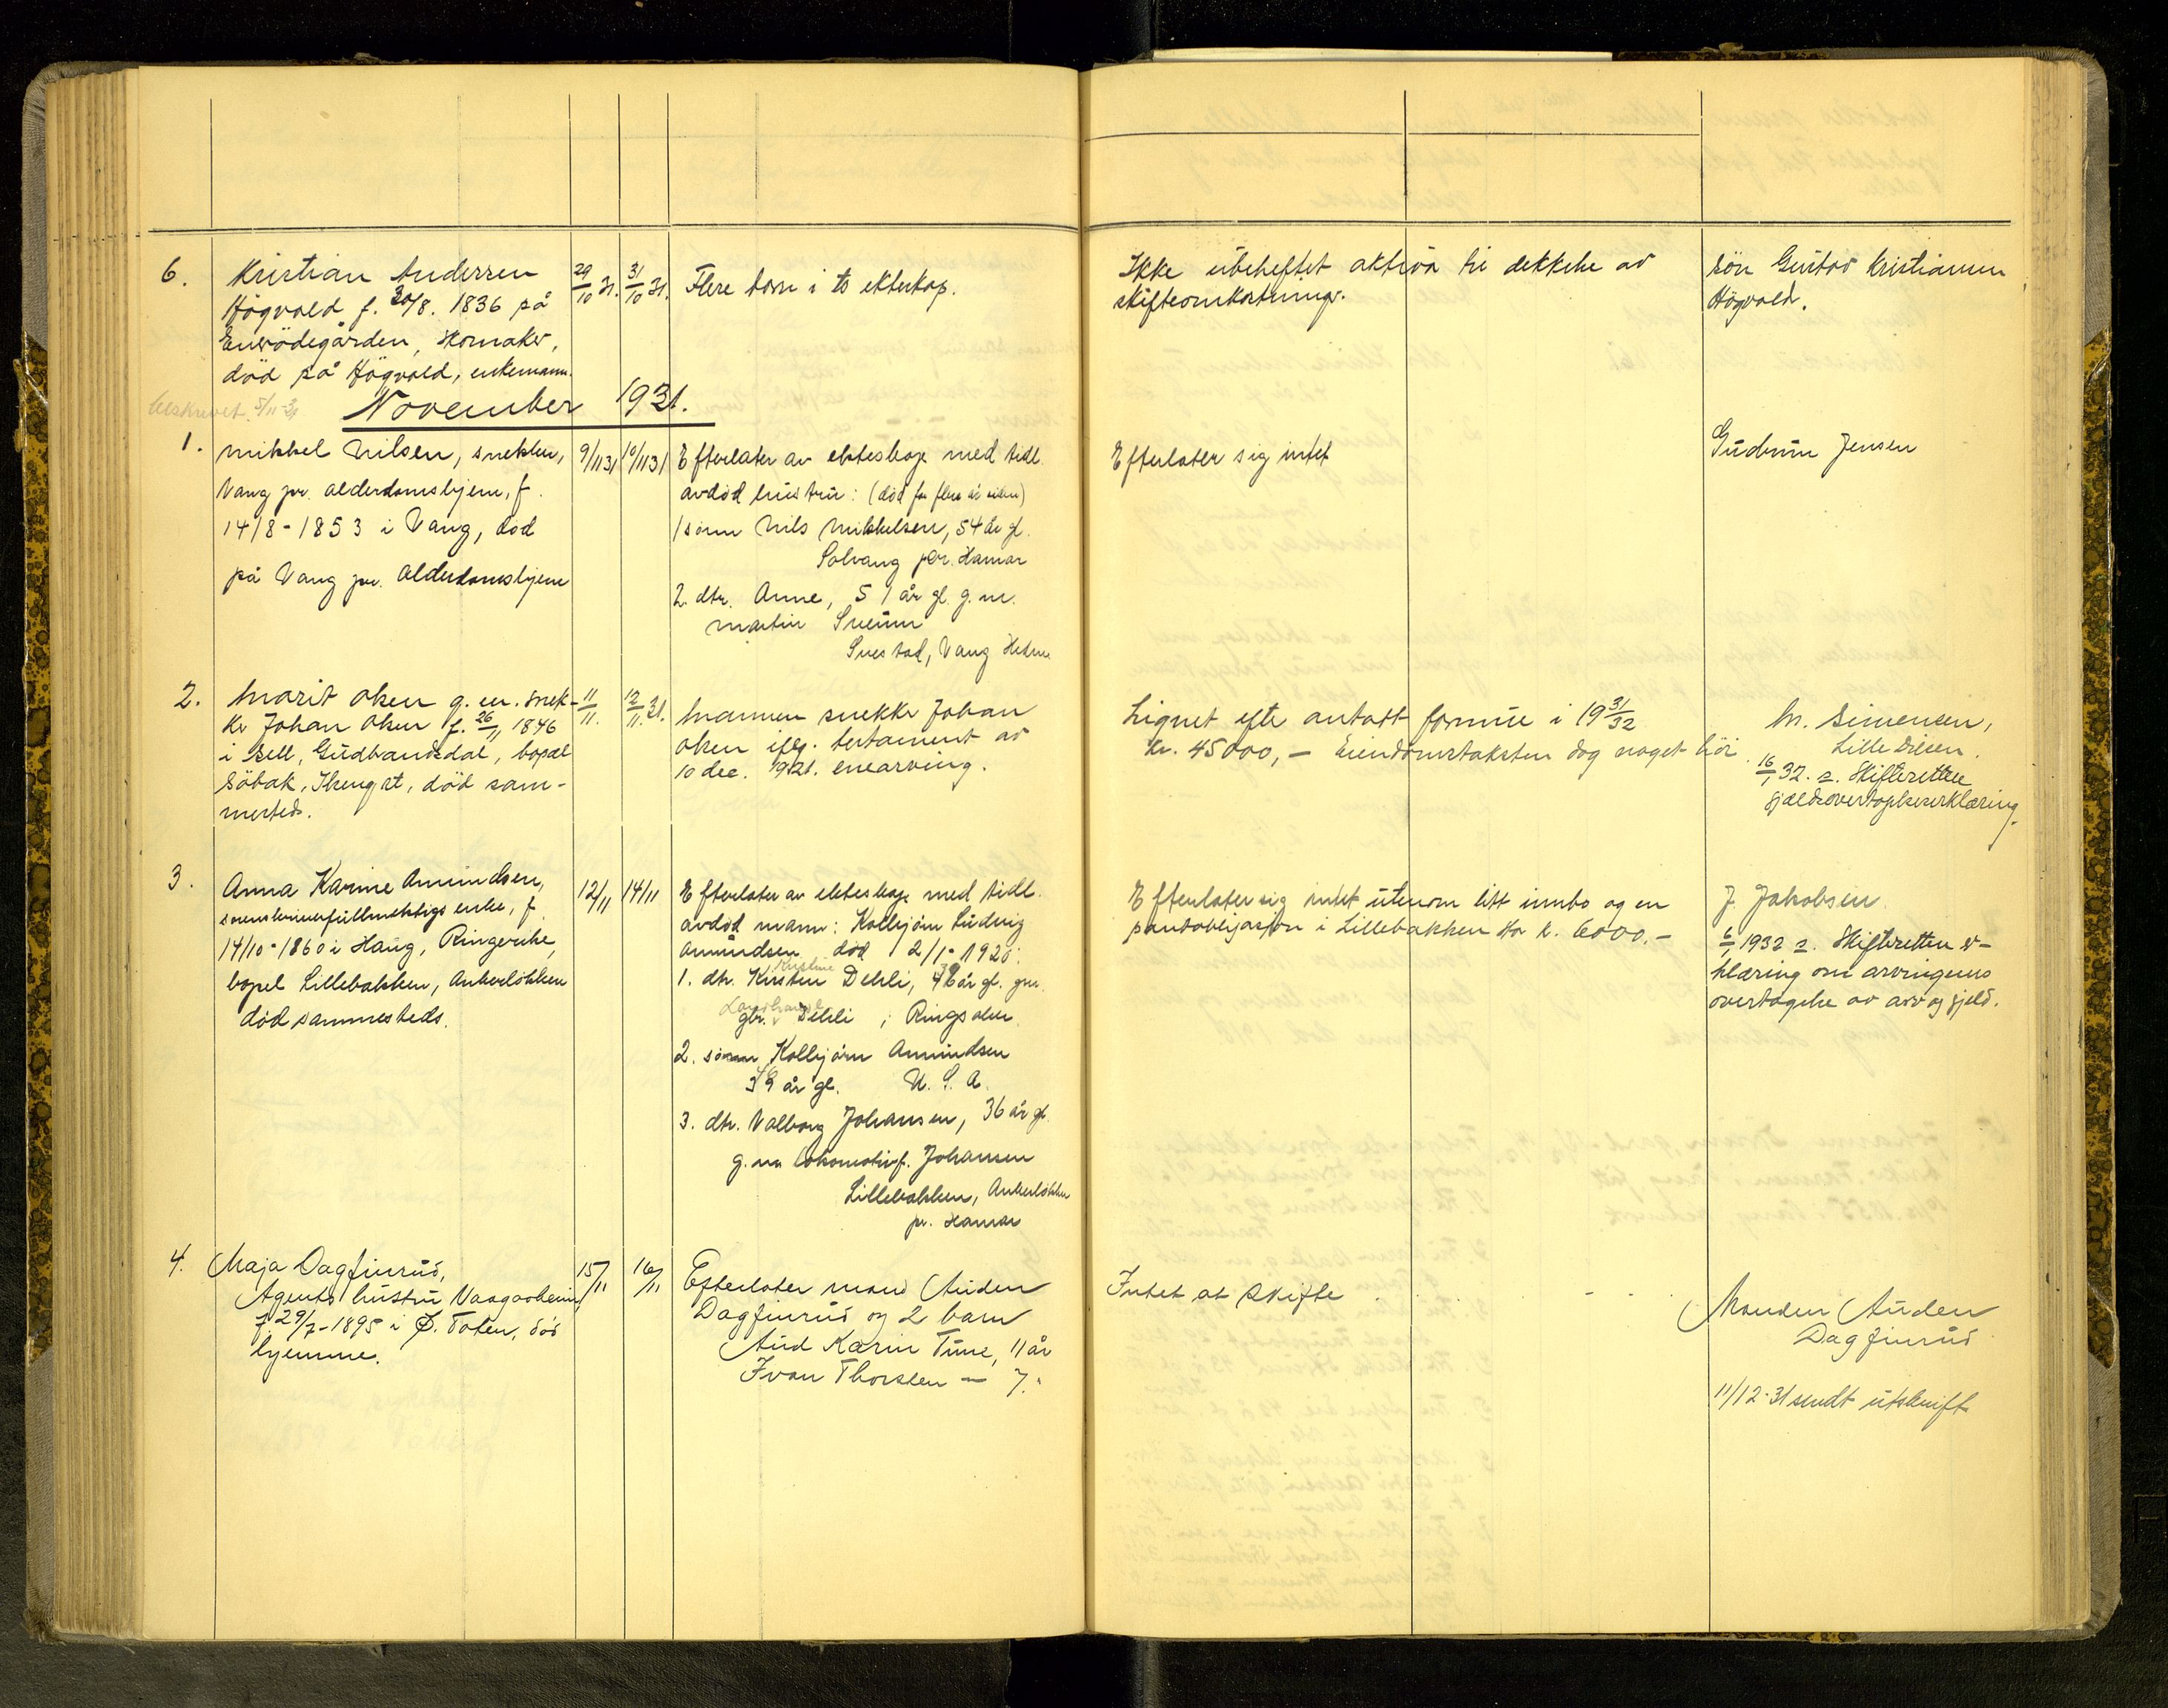 6.
Kristian Andersen
Högvold f. 30/8. 1836 på
Enerödegården, Skomaker,
död på Högvold, enkemann.
29/10 31.
31/10 31.
Flere barn i to ekteskap.
Ikke ubeheftet aktiva til dekkelse av
skifteomkostninger.
Sön Gustav Kristiansen
Högvold.
Utskrevet 5/11-31
November 1931.
1.
Mikkel Nilsen, snekker,
Vang pr. alderdomshjem, f.
14/8-1853 i Vang, död
på Vang pr. Alderdomshjem
9/11 31
10/11 31
Efterlater av ekteskap med tidl.
avdöd hustru: (död for flere år siden)
1 sönn Nils Mikkelsen, 54 år gl.
Solvang pr. Hamar
2. dtr. Anne, 51 år gl. g.m.
Martin Sveum
Snestad, Vang Hedm
Efterlater sig intet
Gudrun Jensen
2.
Marit Olsen g. m. snek-
ker Johan Olsen f. 26/11 1846
i Sell, Gudbrandsdal, bopæl
Söbak, Skengst, död sam-
mesteds.
11/11.
12/11. 31.
Mannen snekker Johan
Olsen iflg. testament av
10 dec. 1921. enearving.
Lignet efter antatt formue i 19 31/32
kr. 45000,- Eiendomstaksten dog noget höi.
M. Simensen,
Lille Disen.
16/1 32. s. Skifteretten
gjældsovertagelseserklæring.
3.
Anna Karine Amundsen,
sorenskriverfullmektigs enke, f.
14/10-1860 i Haug, Ringerike,
bopel Lillebakken, Ankerlökken
död sammesteds.
12/11
14/11
Efterlater av ekteskap med tidl.
avdöd mann: Kolbjörn Ludvig
Amundsen död 2/1-1920:
Kristine
1. dtr. Kirsten Dehli, 46 år gl. gm.
Landhandl.
gbr. Dehli, Ringsaker
2. sönn Kolbjörn Amundsen
39 år gl. U.S.A.
3. dtr. Valborg Johansen, 36 år gl.
g.m. lokomotivf. Johansen
Lillebakken, Ankerlökken
pr. Hamar
Efterlater sig intet utenom litt innbo og en
pantobligasjon i Lillebakken for k. 6000.-
J. Jakobsen.
6/1 1932 s. Skifteretten er-
klæring om arvingenes
overtagelse av arv og gjeld.
4.
Maja Dagfinrud,
Agents hustru Vaagaaheim
f. 29/7-1895 i Ø. Toten, död
hjemme.
15/11
16/11
Efterlater mand Auden
Dagfinrud og 2 barn
Aud Karin Tune, 11 år
Ivan Thorsten – 7 "
Intet at skifte
Manden Auden
Dagfinrud
11/12-31 sendt utskrift